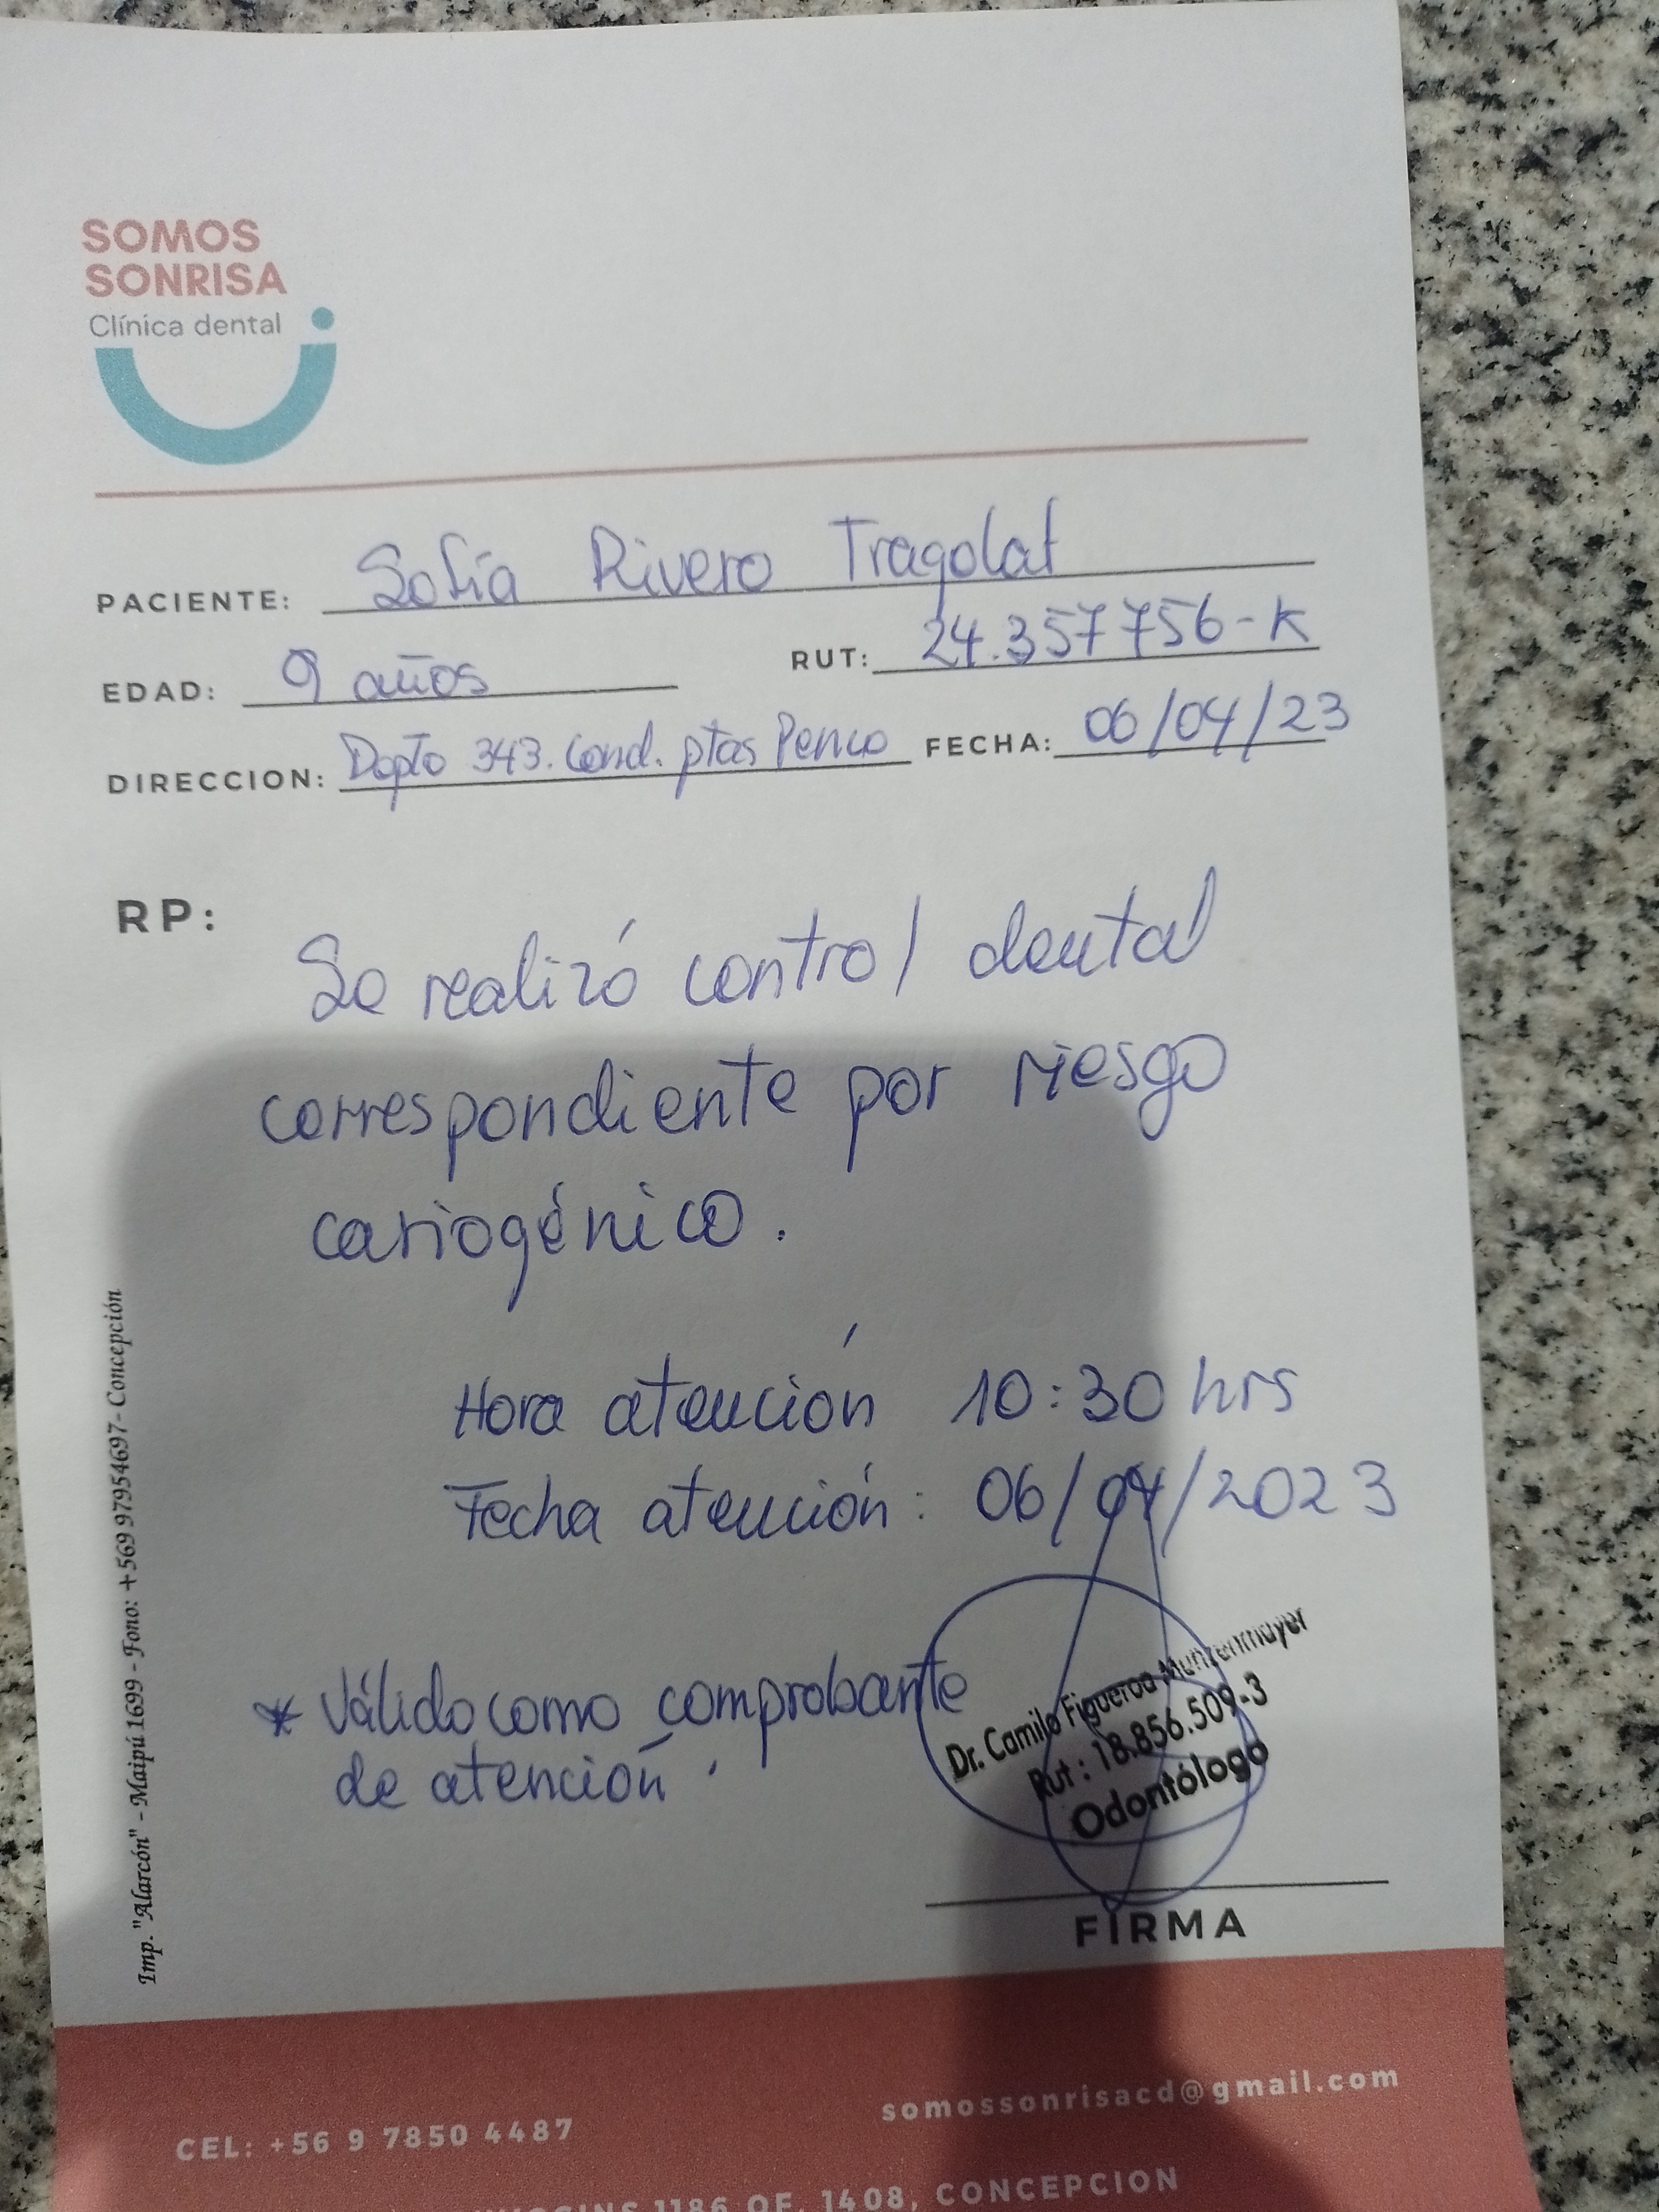 SOMOS
SONRISA
Clínica dental
PACIENTE: Sofía Rivero Tragolaf
EDAD: 9 años RUT: 24.357756-K
DIRECCION: Depto 343. Cond. ptas Penco FECHA: 06/04/23
RP:
Se realizó control dental
correspondiente por riesgo
cariogénico.
Hora atención 10:30 hrs
Fecha atención: 06/04/2023
* Válido como comprobante
de atención.
Dr. Camilo Figueroa Munzenmayer
Rut: 18.856.509-3
Odontólogo
FIRMA
Imp. "Alarcón" - Maipú 1699 - Fono: +569 97954697 - Concepción
CEL: +56 9 7850 4487
somossonrisacd@gmail.com
1186 OF. 1408, CONCEPCION